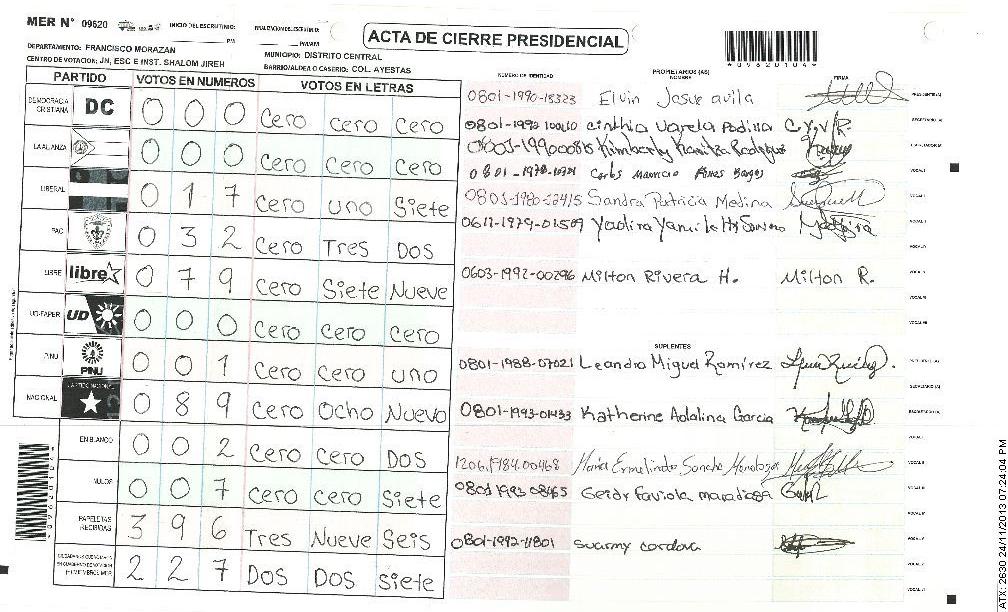 MER N° 09620
INICIO DEL ESCRUTINIO:
PM
FINALIZACION DEL ESCRUTINIO:
PM/AM
ACTA DE CIERRE PRESIDENCIAL
DEPARTAMENTO: FRANCISCO MORAZAN
MUNICIPIO: DISTRITO CENTRAL
CENTRO DE VOTACION: JN, ESC E INST. SHALOM JIREH
BARRIO/ALDEA O CASERIO: COL. AYESTAS
PARTIDO VOTOS EN NUMEROS VOTOS EN LETRAS
DEMOCRACIA CRISTIANA DC 0 0 0 Cero cero Cero
LA ALIANZA 0 0 0 Cero Cero Cero
LIBERAL 0 1 7 Cero uno Siete
PAC 0 3 2 Cero Tres Dos
LIBRE libre 0 7 9 Cero Siete Nueve
UD-FAPER UD 0 0 0 Cero cero cero
PINU PINU 0 0 1 Cero Cero uno
NACIONAL 0 8 9 Cero Ocho Nuevo
EN BLANCO 0 0 2 Cero Cero DOS
NULOS 0 0 7 Cero Cero Siete
PAPELETAS RECIBIDAS 3 9 6 Tres Nueve Seis
2 2 7 DOS DOS Siete
NUMERO DE IDENTIDAD PROPIETARIOS (AS) NOMBRE FIRMA
0801-1990-18323 Elvin Josue avila PRESIDENTE(A)
Cinthia Varela Padilla C.Y.V/R. SECRETARIO (A)
Kimberly Rodriguez ESCRUTADOR (A)
Carlos Mauricio VOCAL I
0801-1980-12415 Sandra Patricia Medina
0611-1979-01509 Yadira
0603-1992-00296 Milton Rivera H. Milton R.
SUPLENTES
0801-1988-07021 Leandro Miguel Ramirez
SECRETARIO (A)
0801-1993-01433 Katherine Adalina Garcia ESCRUTADOR (A)
1206.1984.00468 Maria Ermelinda
0801 1993 08465 Geidy Faviola
0801-1992-11801 Suarmy cordova
*09620104*
ATX: 2630 24/11/2013 07:24:04 PM